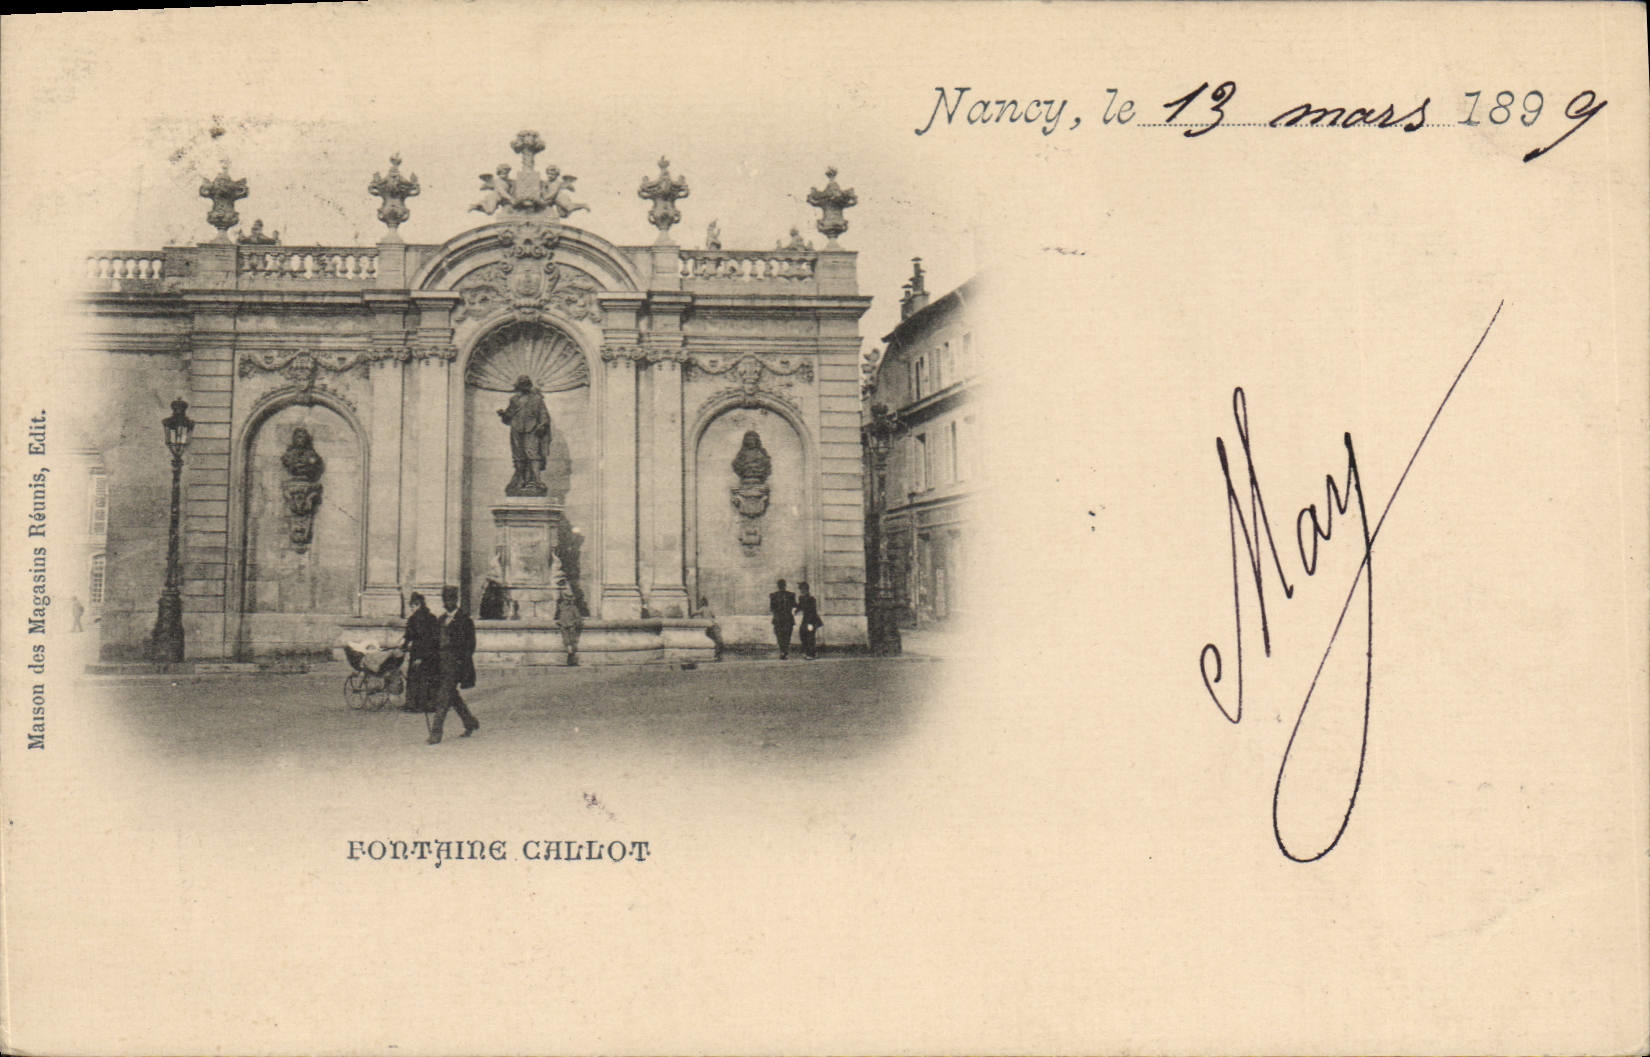 Nancy, le 13 mars 1899
May
Maison des Magasins Réunis, Edit.
FONTAINE CALLOT